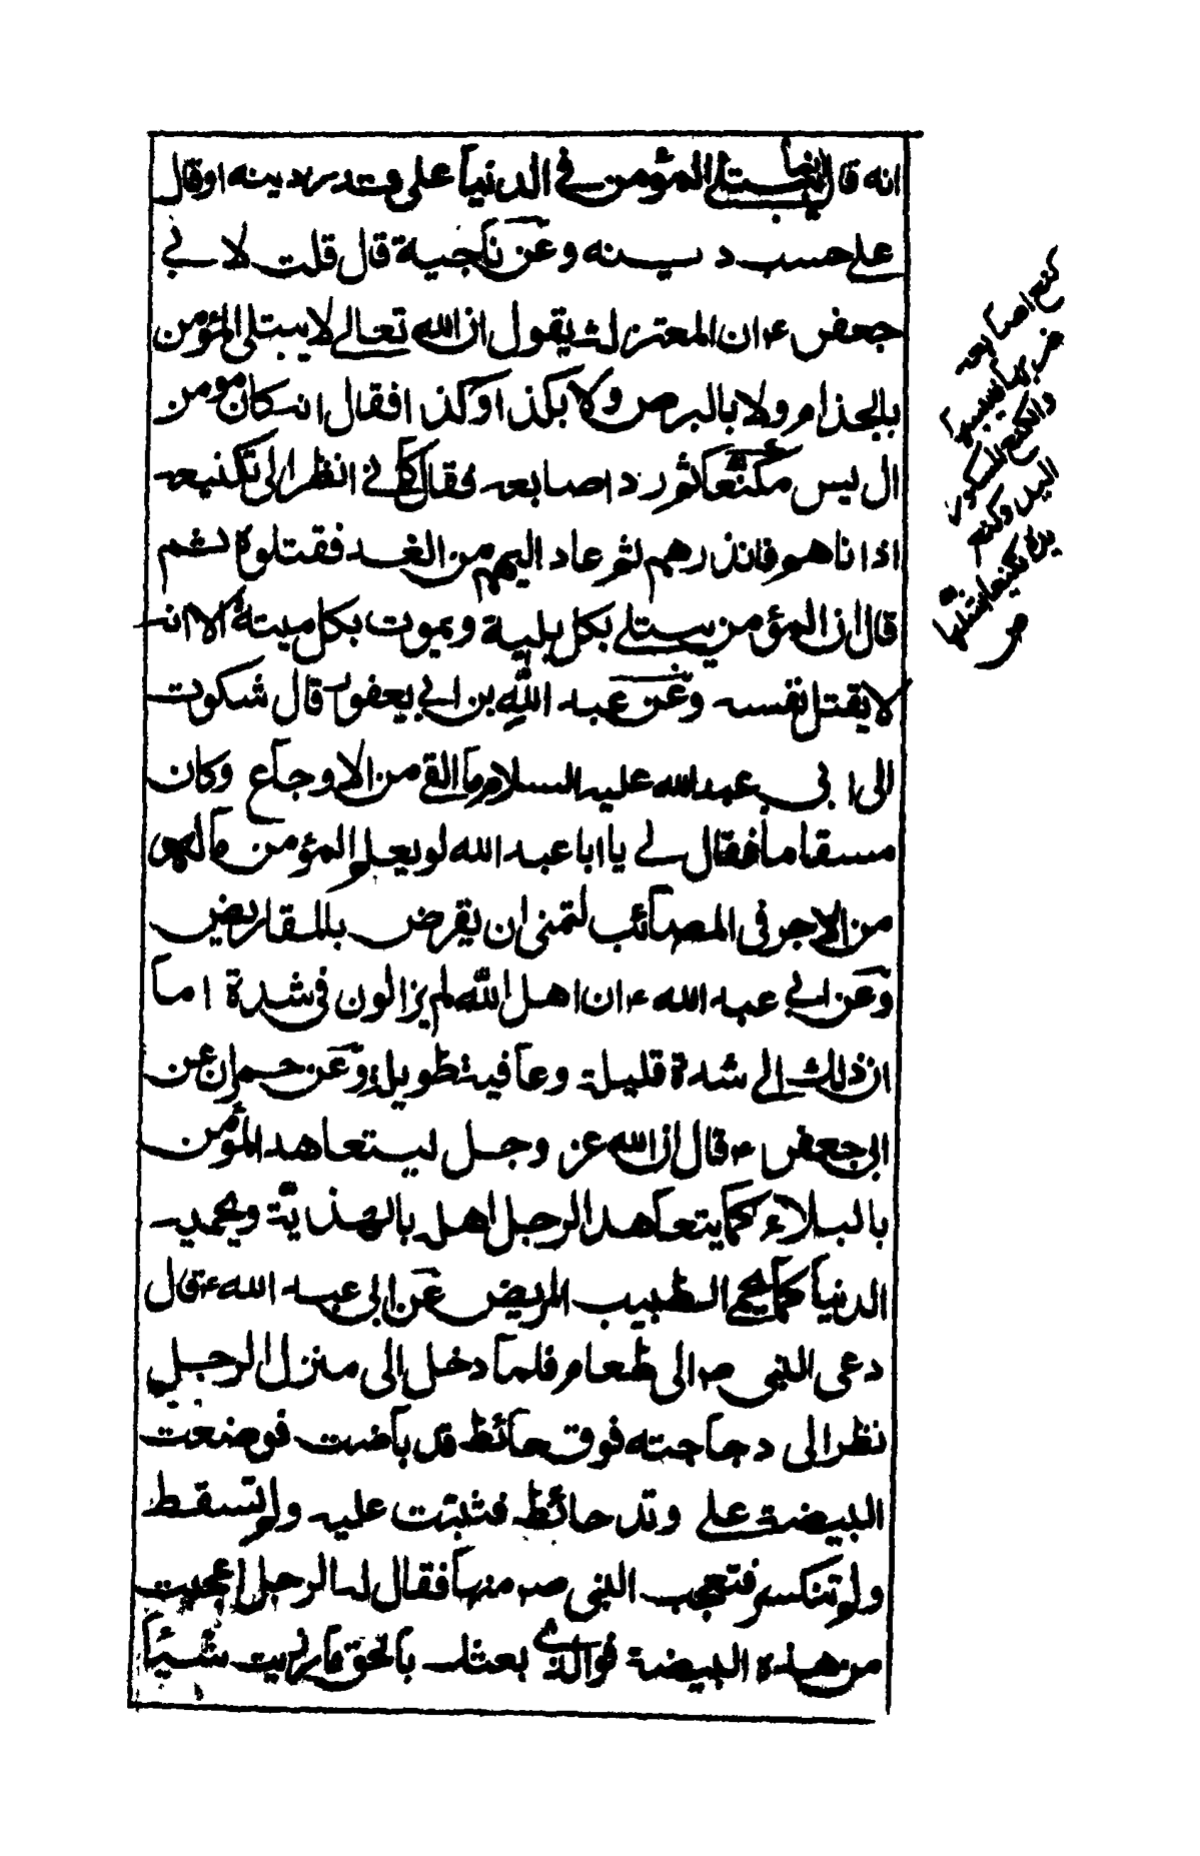 انه قال انما يبتلى المؤمن في الدنيا على قدر دينه او قال
على حسب دينه وعن نكجية قال قلت لابي
جعفر ء ان المعتزلة يقول ان الله تعالى لا يبتلى المؤمن
بالجذام ولا بالبرص ولا بكذا وكذا فقال ان كان مومن
ال يس مكنعا ثم رد اصابعه فقال كاني انظر الى تكنيعه
اذا ناهم فانذرهم ثم عاد اليهم من الغد فقتلوه ثم
قال ان المؤمن يبتلى بكل بلية ويموت بكل ميتة الا انه
لا يقتل نفسه وعن عبد الله بن ابي يعفور قال شكوت
الى ابي عبد الله عليه السلام ما القى من الاوجاع وكان
مسقاما فقال لي يا ابا عبد الله لو يعلم المؤمن ماله
من الاجر في المصائب لتمنى ان يقرض بالمقاريض
وعن ابي عبد الله ء ان اهل الله لم يزالون في شدة اما
ان ذلك الى شدة قليلة وعافية طويلة وعن حمران عن
ابي جعفر ء قال ان الله عز وجل ليتعاهد المؤمن
بالبلاء كما يتعاهد الرجل اهله بالهذيّة ويحميه
الدنيا كما يحمي الطبيب المريض عن ابي عبد الله ء قال
دعى النبي ص الى طعام فلما دخل الى منزل الرجل
نظر الى دجاجته فوق حائط قد باضت فوضعت
البيضة على وتد حائط فثبتت عليه ولم تسقط
ولم تنكسر فتعجب النبي ص منها فقال له الرجل اعجبت
من هذه البيضة فوالذي بعثك بالحق ما رزيت شيئا
كنع اصابعه
ضربها فيبست
والكنع المكسور
اليد وكنع
يده تكنيعا اشلها
ص